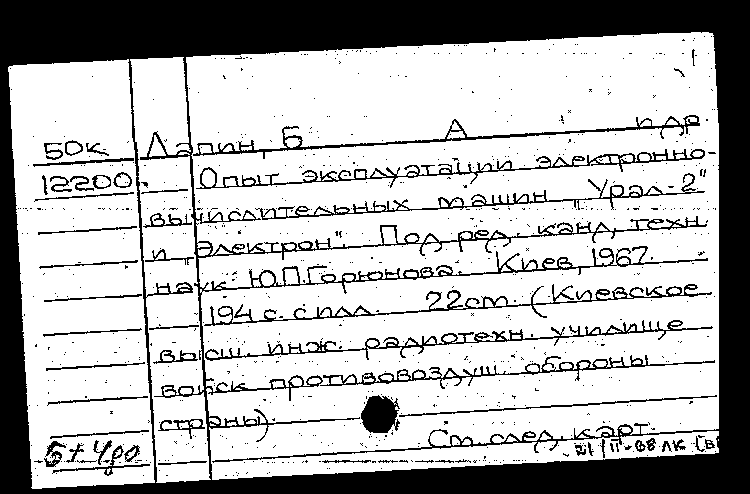 50к Лапин, Б А и др.
12200. Опыт эксплуатации электронно-
вычислительных машин „Урал-2"
и „Электрон". Под ред. канд. техн.
наук Ю.П.Горюнова. Киев, 1967.
194 с. с илл. 22см. (Киевское
высш. инж. радиотехн. училище
войск противовоздуш. обороны
страны).
См. след. карт.
Б+4до
21/II-68 ЛК